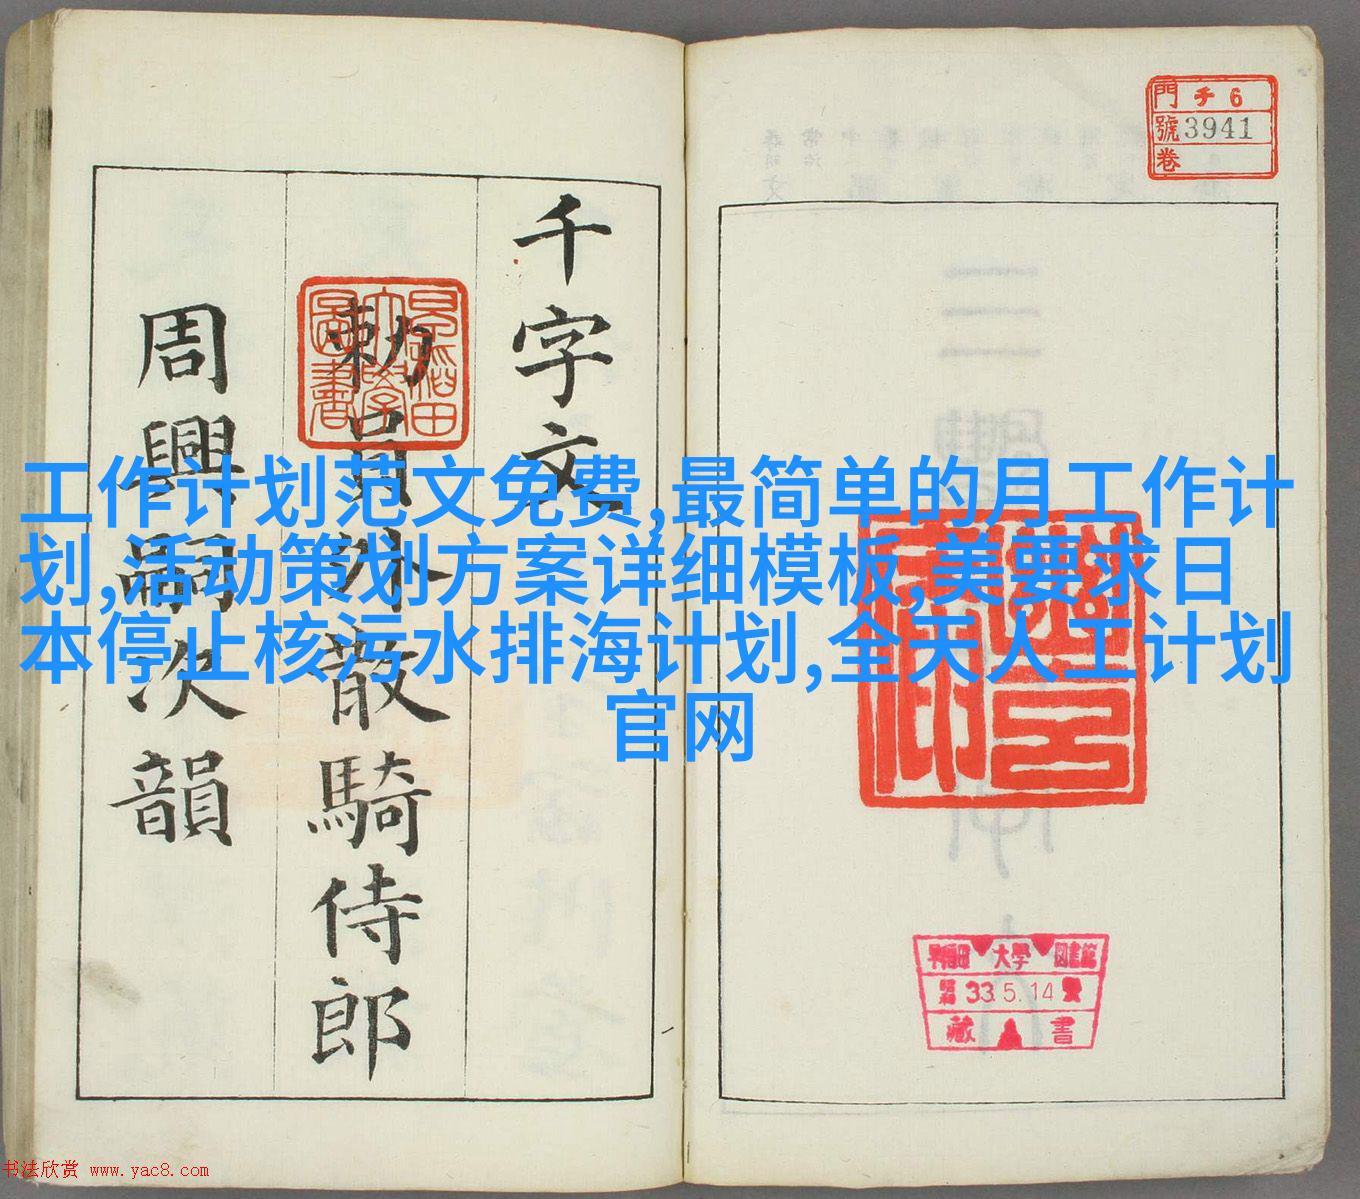 千字文
勅員外散騎侍郎
周興嗣次韻
門 チ 6
號 3941
卷
早稲田大學圖書
工作计划范文免费,最简单的月工作计
划,活动策划方案详细模板,美要求日
本停止核污水排海计划,全天人工计划
官网
早稲田 大學 図書館
昭和 33.5.14
藏 書
书法欣赏 www.yac8.com